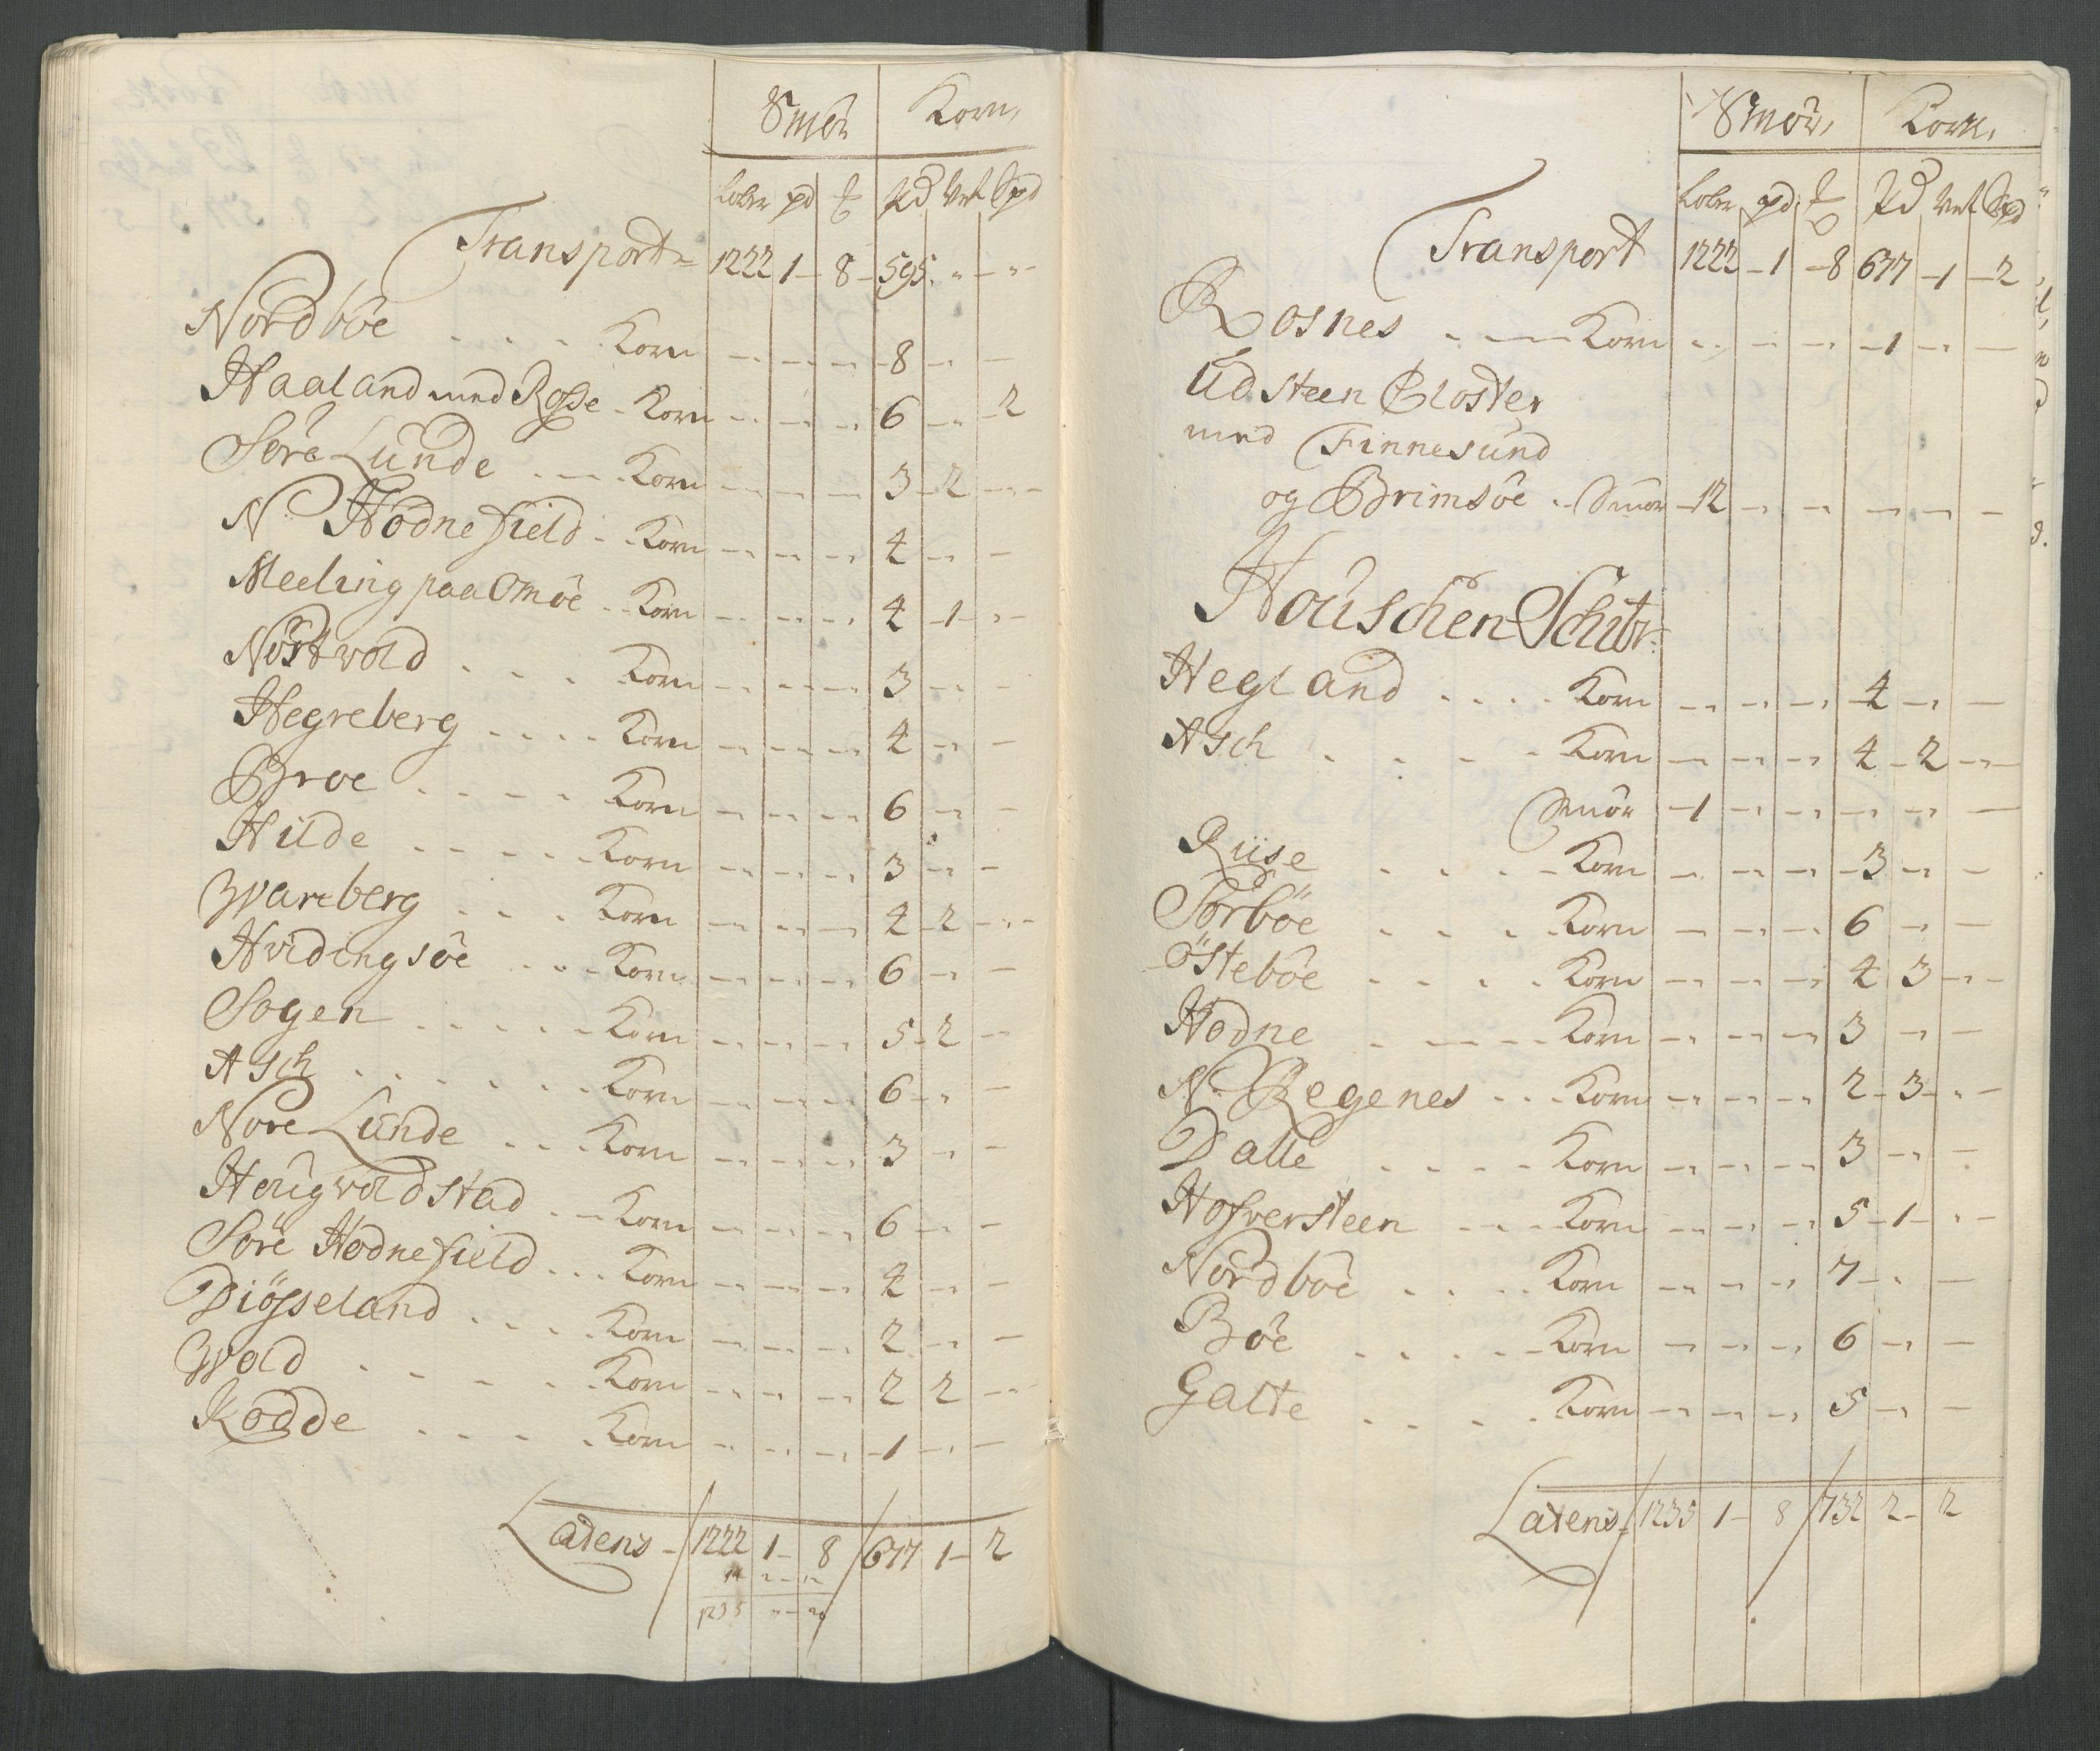 Smör Korn,
Löber pd ℔ Pd Vet Spd
Transport 1222 1 – 8 – 595 " – " –
Nordböe . . . . Korn – – – 8 – " –
Haaland med Rosse – Korn – – – 6 – " – 2
Söre Lunde . – – Korn – – – 3 – 2 – " –
N. Hodnefield – . Korn – – – 4 – " –
Meeling paa Omöe . . Korn – – – 4 – 1 – " –
Nörtvold . . . Korn – – – 3 – " –
Hegreberg . . . . Korn – – – 4 – " –
Broe . . . . Korn – – – 6 – " –
Hilde . . . . . Korn – – – 3 – " –
Wareberg . . . Korn – – – 4 – 2 – " –
Hvidingsöe . . . Korn – – – 6 – " –
Sogen . . . . . Korn – – – 5 – 2 – "
Asch . . . . . . Korn – – – 6 – " –
Nore Lunde . . . Korn – – – 3 – " –
Hougvoldstad . – Korn – – – 6 – " –
Söre Hodnefield . . . Korn – – – 4 – " –
Diösseland . . . . Korn – – – 2 – " –
Wold . . . . . Korn – – – 2 2 – "
Kodde . . . . Korn – – – 1 – " –
Latens – 1222 1 – 8 677 1 – 2
1235
Smör, Korn,
Löber pd ℔ Pd Vet Spd
Transport 1222 – 1 – 8 677 – 1 – 2
Rosnes . – – Korn – – – 1 – " –
Udsteen Closter
med Finnesund
og Brimsöe . . Smör 12 – – – – –
Houschen Schibr:
Hegland . . . . Korn – – – 4 – " –
Asch . . . . Korn – – – 4 – 2 – " –
Smör – 1 – – – – –
Riise . . . . Korn – – – 3 – " –
Sörböe . . . . Korn – – – 6 – " –
Östeböe . . . . Korn – – – 4 3 – " –
Hodne . – – . Korn – – – 3 – " –
N. Regenes . . . Korn – – – 2 – 3 – " –
Dalle . . . . Korn – – – 3 – " –
Hofversteen . . . Korn – – – 5 – 1 – " –
Nordböe . . . . Korn – – – 7 – " –
Böe . . . . Korn – – – 6 – " –
Galte . . . . Korn – – – 5 – " –
Latens – 1235 1 – 8 732 2 – 2